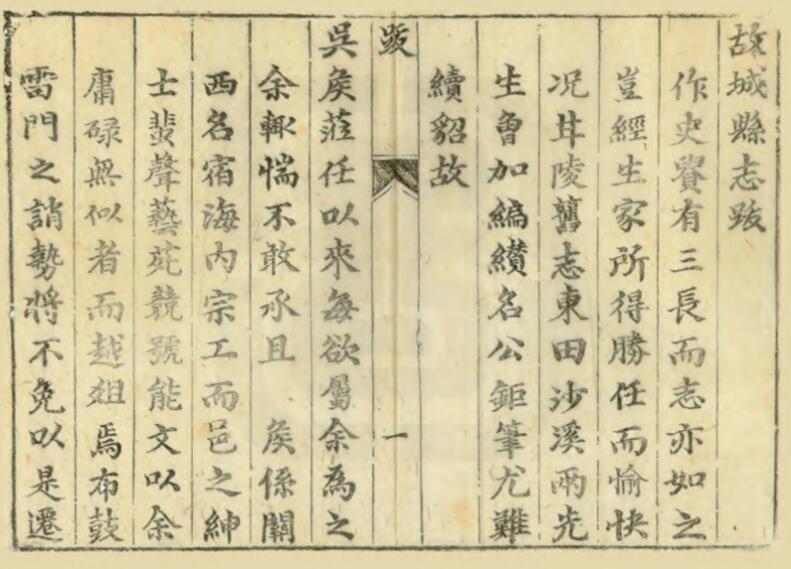 故城縣志跋
作史貲有三長而志亦如之
豈經生家所得勝任而愉快
况甘陵舊志東田沙溪兩先
生曾加編纘名公鉅筆尤難
續貂故
跋
一
吳矦蒞任以來每欲屬余為之
余輙惴不敢承且 矦係關
西名宿海內宗工而邑之紳
士蜚聲藝苑競號能文以余
庸碌無似者而越俎焉布鼓
雷門之誚勢將不免以是遷